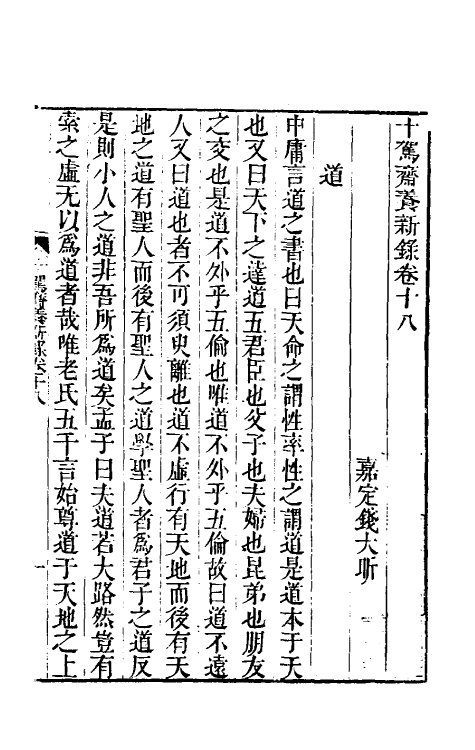 十駕齋養新錄卷十八
嘉定錢大昕
道
中庸言道之書也曰天命之謂性率性之謂道是道本于天
也又曰天下之達道五君臣也父子也夫婦也昆弟也朋友
之交也是道不外乎五倫也唯道不外乎五倫故曰道不遠
人又曰道也者不可須臾離也道不虛行有天地而後有天
地之道有聖人而後有聖人之道學聖人者為君子之道反
是則小人之道非吾所為道矣孟子曰夫道若大路然豈有
索之虛无以為道者哉唯老氏五千言始尊道于天地之上
十駕齋養新錄卷十八 一